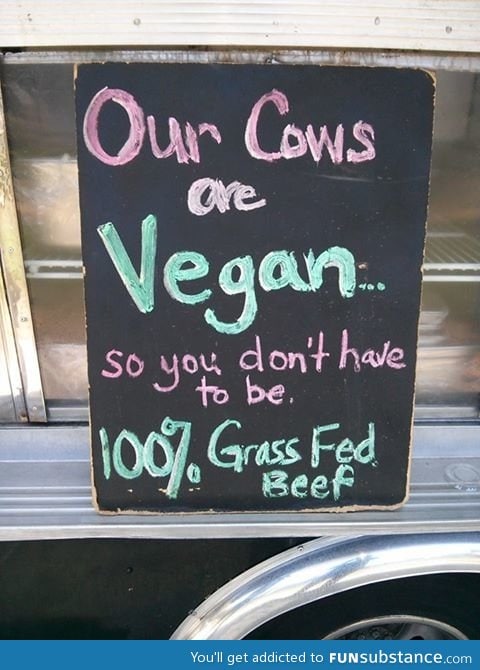 Our Cows
are
Vegan...
so you don't have
to be.
100% Grass Fed
Beef
You'll get addicted to FUNsubstance.com